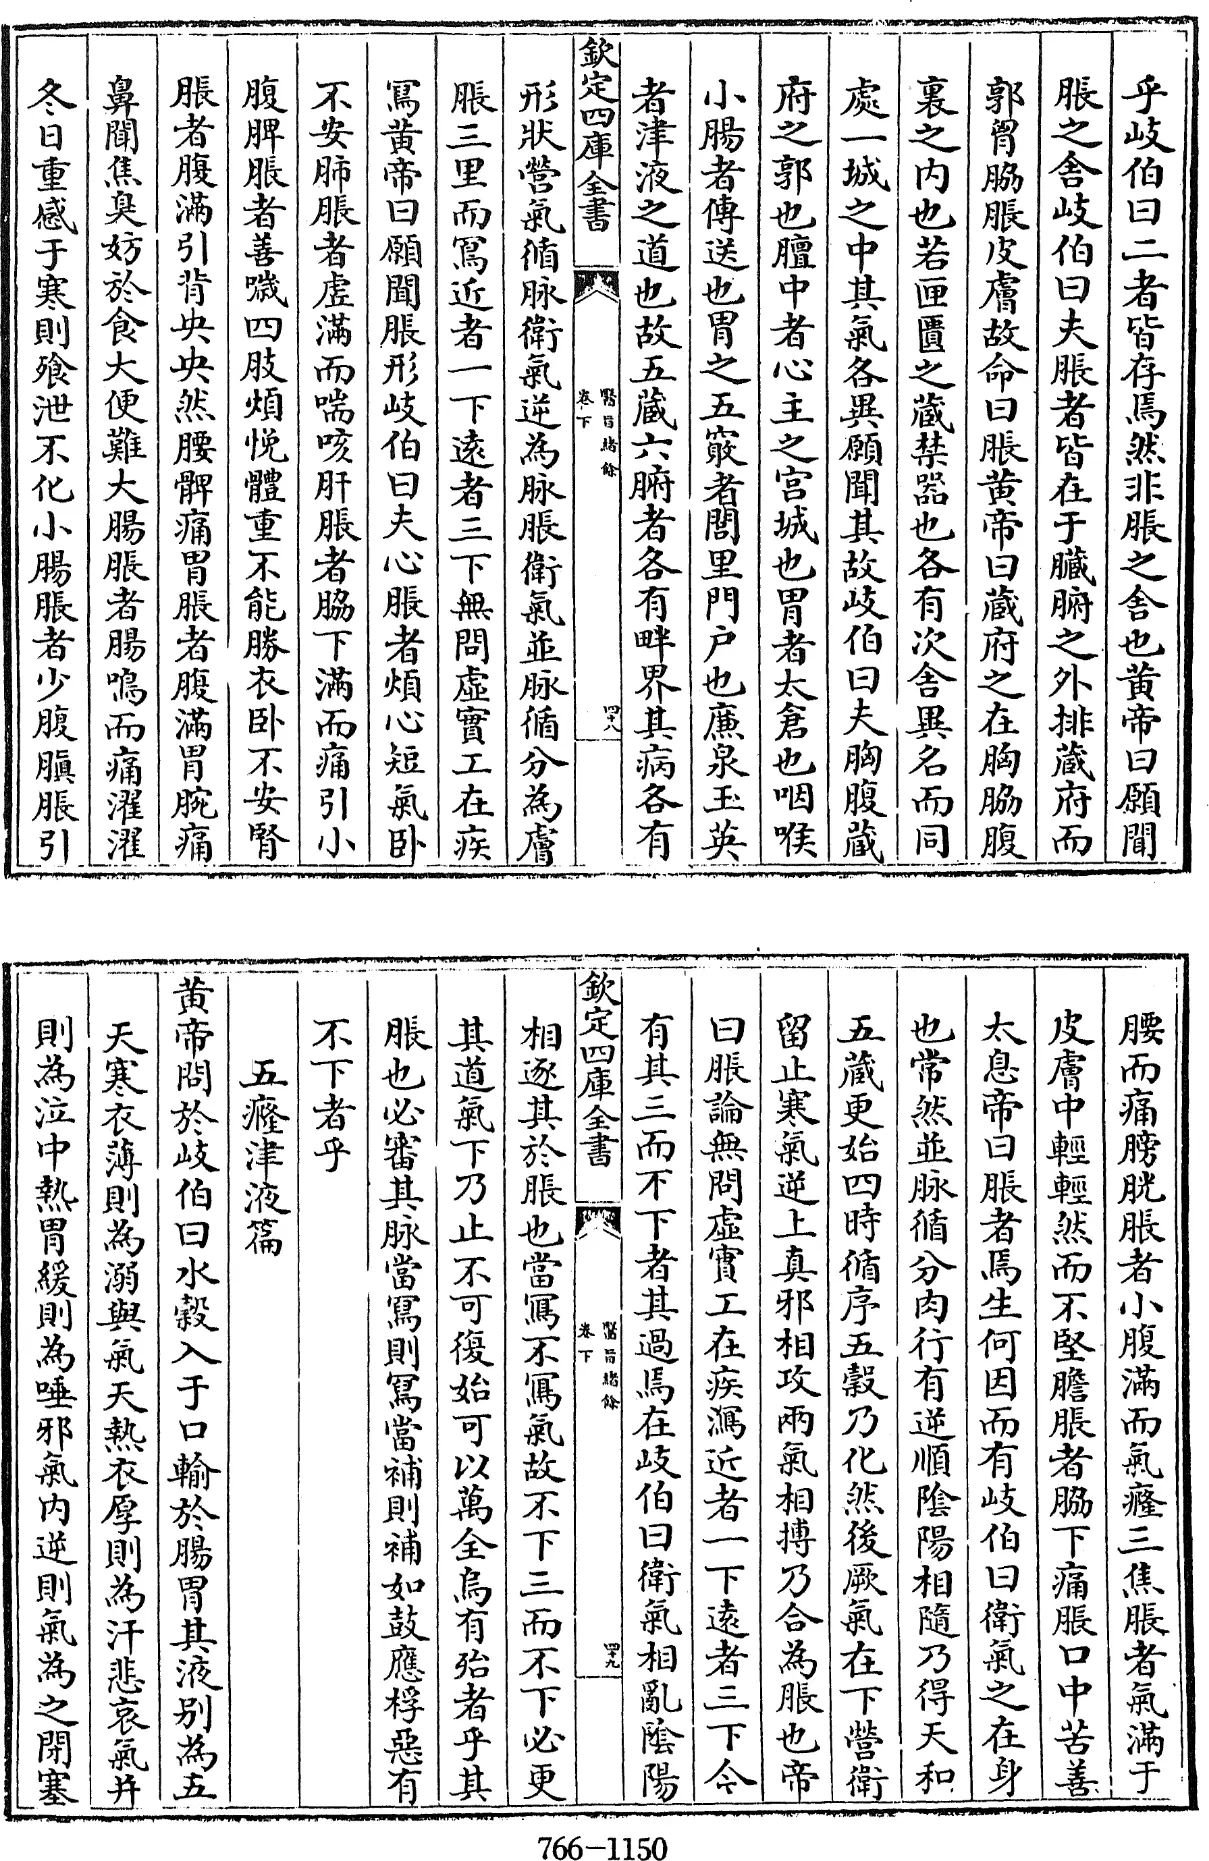 乎岐伯曰二者皆存焉然非脹之舍也黄帝曰願聞
脹之舍岐伯曰夫脹者皆在于臓腑之外排蔵府而
郭胷脇脹皮膚故命曰脹黄帝曰蔵府之在胸脇腹
裏之内也若匣匱之蔵禁器也各有次舍異名而同
處一城之中其氣各異願聞其故岐伯曰夫胸腹蔵
府之郭也膻中者心主之宫城也胃者太倉也咽喉
小腸者傳送也胃之五竅者閭里門户也廉泉玉英
者津液之道也故五蔵六腑者各有畔界其病各有
欽定四庫全書
醫旨緒餘
卷下
四十八
形狀營氣循脉衛氣逆為脉脹衛氣並脉循分為膚
脹三里而寫近者一下遠者三下無問虚實工在疾
寫黄帝曰願聞脹形岐伯曰夫心脹者煩心短氣卧
不安肺脹者虚滿而喘咳肝脹者脇下滿而痛引小
腹脾脹者善噦四肢煩悗體重不能勝衣卧不安腎
脹者腹滿引背央央然腰髀痛胃脹者腹滿胃脘痛
鼻聞焦臭妨於食大便難大腸脹者腸鳴而痛濯濯
冬日重感于寒則飱泄不化小腸脹者少腹䐜脹引
腰而痛膀胱脹者小腹滿而氣癃三焦脹者氣滿于
皮膚中輕輕然而不堅膽脹者脇下痛脹口中苦善
太息帝曰脹者焉生何因而有岐伯曰衛氣之在身
也常然並脉循分肉行有逆順隂陽相隨乃得天和
五蔵更始四時循序五穀乃化然後厥氣在下營衛
留止寒氣逆上真邪相攻兩氣相搏乃合為脹也帝
曰脹論無問虚實工在疾瀉近者一下遠者三下今
有其三而不下者其過焉在岐伯曰衛氣相亂隂陽
欽定四庫全書
醫旨緒餘
卷下
四十九
相逐其於脹也當寫不寫氣故不下三而不下必更
其道氣下乃止不可復始可以萬全烏有殆者乎其
脹也必審其脉當寫則寫當補則補如鼓應桴惡有
不下者乎
五癃津液篇
黄帝問於岐伯曰水穀入于口輸於腸胃其液别為五
天寒衣薄則為溺與氣天熱衣厚則為汗悲哀氣并
則為泣中熱胃緩則為唾邪氣内逆則氣為之閉塞
766-1150